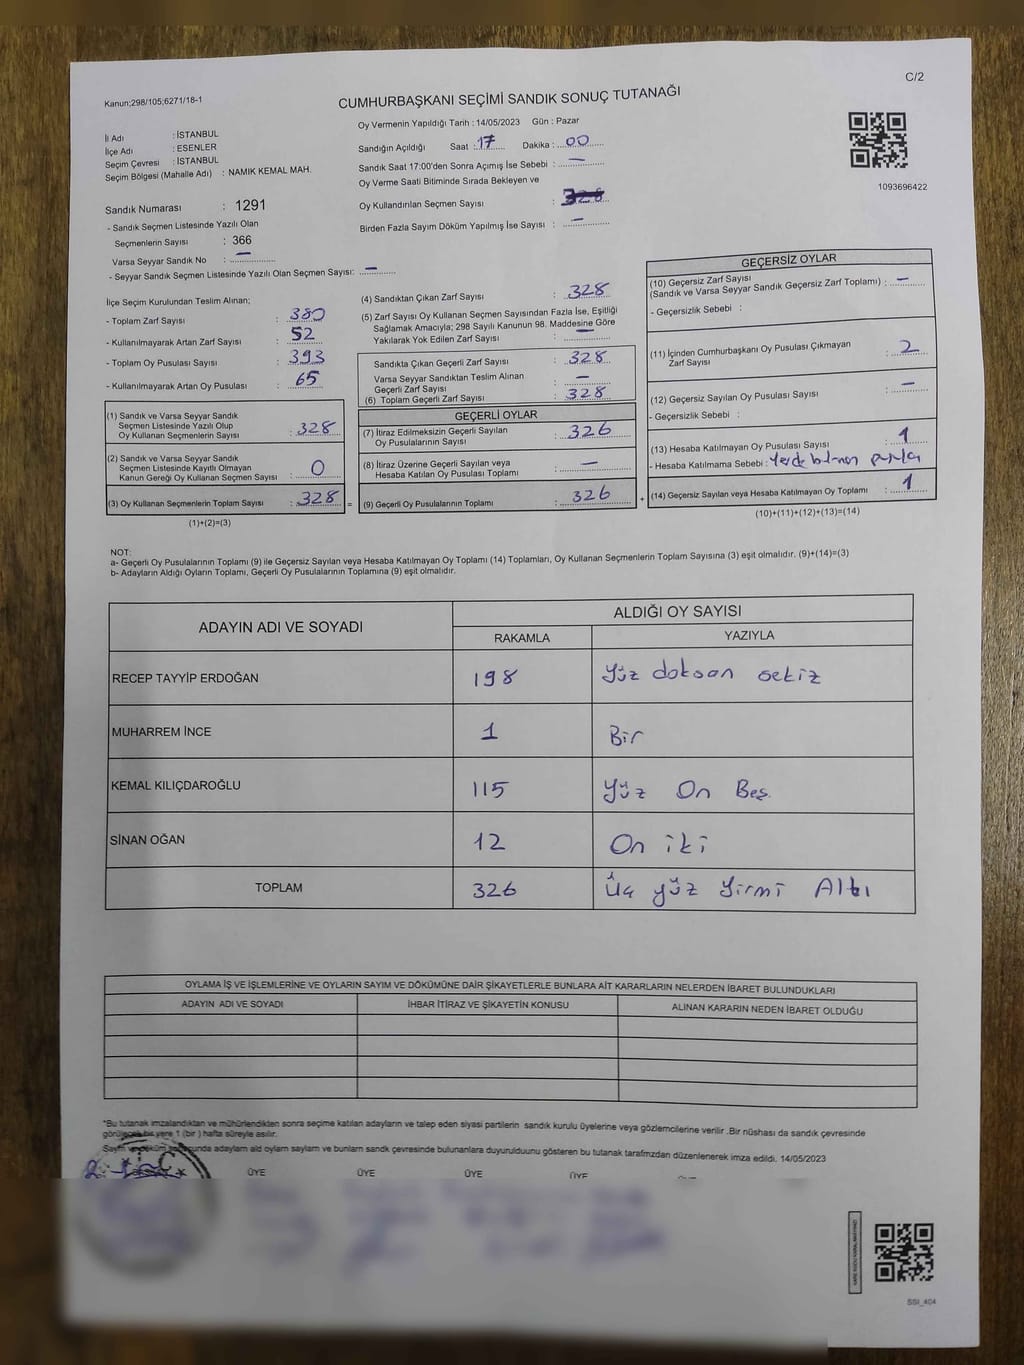 C/2
Kanun;298/105;6271/18-1
CUMHURBAŞKANI SEÇİMİ SANDIK SONUÇ TUTANAĞI
İl Adı : İSTANBUL
İlçe Adı : ESENLER
Seçim Çevresi : İSTANBUL
Seçim Bölgesi (Mahalle Adı) : NAMIK KEMAL MAH.
Oy Vermenin Yapıldığı Tarih : 14/05/2023 Gün : Pazar
Sandığın Açıldığı Saat : 17 Dakika : 00
Sandık Saat 17:00'den Sonra Açımış İse Sebebi : —
Oy Verme Saati Bitiminde Sırada Bekleyen ve
Oy Kullandırılan Seçmen Sayısı :
Birden Fazla Sayım Döküm Yapılmış İse Sayısı : —
1093696422
Sandık Numarası : 1291
- Sandık Seçmen Listesinde Yazılı Olan
Seçmenlerin Sayısı : 366
Varsa Seyyar Sandık No : —
- Seyyar Sandık Seçmen Listesinde Yazılı Olan Seçmen Sayısı: —
İlçe Seçim Kurulundan Teslim Alınan;
- Toplam Zarf Sayısı : 380
- Kullanılmayarak Artan Zarf Sayısı : 52
- Toplam Oy Pusulası Sayısı : 393
- Kullanılmayarak Artan Oy Pusulası : 65
(1) Sandık ve Varsa Seyyar Sandık
Seçmen Listesinde Yazılı Olup
Oy Kullanan Seçmenlerin Sayısı : 328
(2) Sandık ve Varsa Seyyar Sandık
Seçmen Listesinde Kayıtlı Olmayan
Kanun Gereği Oy Kullanan Seçmen Sayısı : 0
(3) Oy Kullanan Seçmenlerin Toplam Sayısı : 328 =
(1)+(2)=(3)
(4) Sandıktan Çıkan Zarf Sayısı : 328
(5) Zarf Sayısı Oy Kullanan Seçmen Sayısından Fazla İse, Eşitliği
Sağlamak Amacıyla; 298 Sayılı Kanunun 98. Maddesine Göre
Yakılarak Yok Edilen Zarf Sayısı : —
Sandıkta Çıkan Geçerli Zarf Sayısı : 328
Varsa Seyyar Sandıktan Teslim Alınan
Geçerli Zarf Sayısı : —
(6) Toplam Geçerli Zarf Sayısı : 328
GEÇERLİ OYLAR
(7) İtiraz Edilmeksizin Geçerli Sayılan
Oy Pusulalarının Sayısı : 326
(8) İtiraz Üzerine Geçerli Sayılan veya
Hesaba Katılan Oy Pusulası Toplamı : —
(9) Geçerli Oy Pusulalarının Toplamı : 326 +
GEÇERSİZ OYLAR
(10) Geçersiz Zarf Sayısı
(Sandık ve Varsa Seyyar Sandık Geçersiz Zarf Toplamı) : —
- Geçersizlik Sebebi :
(11) İçinden Cumhurbaşkanı Oy Pusulası Çıkmayan
Zarf Sayısı : 2
(12) Geçersiz Sayılan Oy Pusulası Sayısı : —
- Geçersizlik Sebebi :
(13) Hesaba Katılmayan Oy Pusulası Sayısı : 1
- Hesaba Katılmama Sebebi : Yerde bulunan pusula
(14) Geçersiz Sayılan veya Hesaba Katılmayan Oy Toplamı : 1
(10)+(11)+(12)+(13)=(14)
NOT:
a- Geçerli Oy Pusulalarının Toplamı (9) ile Geçersiz Sayılan veya Hesaba Katılmayan Oy Toplamı (14) Toplamları, Oy Kullanan Seçmenlerin Toplam Sayısına (3) eşit olmalıdır. (9)+(14)=(3)
b- Adayların Aldığı Oyların Toplamı, Geçerli Oy Pusulalarının Toplamına (9) eşit olmalıdır.
ADAYIN ADI VE SOYADI ALDIĞI OY SAYISI
RAKAMLA YAZIYLA
RECEP TAYYİP ERDOĞAN 198 Yüz doksan sekiz
MUHARREM İNCE 1 Bir
KEMAL KILIÇDAROĞLU 115 Yüz On Beş
SİNAN OĞAN 12 On iki
TOPLAM 326 Üç yüz Yirmi Altı
OYLAMA İŞ VE İŞLEMLERİNE VE OYLARIN SAYIM VE DÖKÜMÜNE DAİR ŞİKAYETLERLE BUNLARA AİT KARARLARIN NELERDEN İBARET BULUNDUKLARI
ADAYIN ADI VE SOYADI İHBAR İTİRAZ VE ŞİKAYETİN KONUSU ALINAN KARARIN NEDEN İBARET OLDUĞU
*Bu tutanak imzalandıktan ve mühürlendikten sonra seçime katılan adayların ve talep eden siyasi partilerin sandık kurulu üyelerine veya gözlemcilerine verilir .Bir nüshası da sandık çevresinde
görülecek bir yere 1 (bir) hafta süreyle asılır.
Sayım ve döküm sonunda adayların aldı oyların sayların ve bunların sandk çevresinde bulunanlara duyurulduunu gösteren bu tutanak tarafmzdan düzenlenerek imza edildi. 14/05/2023
ÜYE ÜYE ÜYE ÜYE
SSI_404